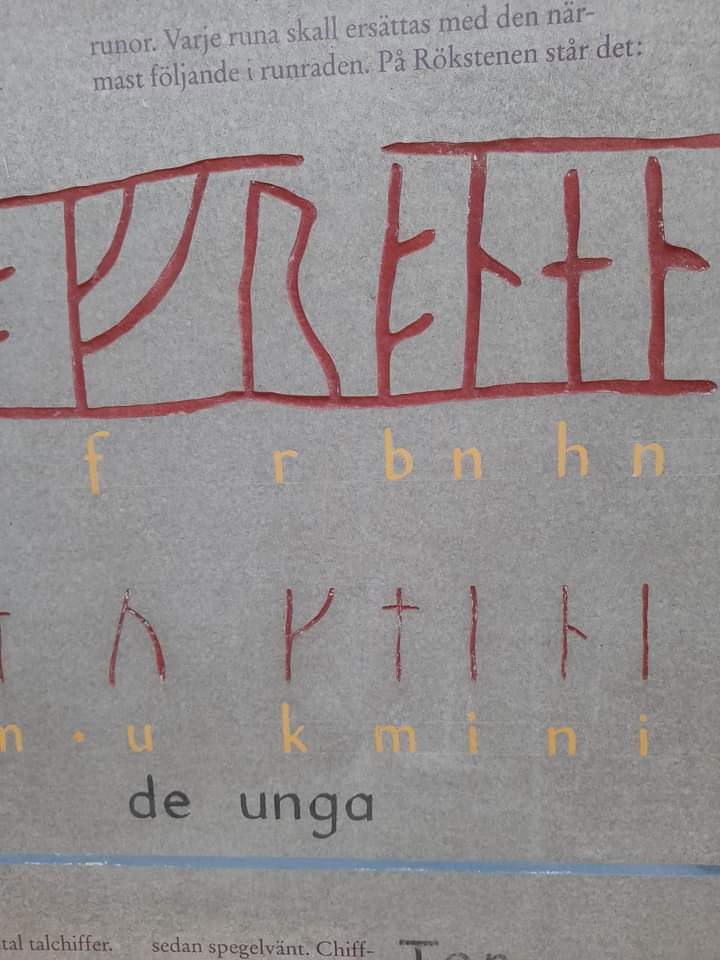 runor. Varje runa skall ersättas med den när-
mast följande i runraden. På Rökstenen står det:
ᚠ ᚱ ᛓ ᚿ ᚽ ᚿ
f r b n h n
ᚢ ᚴ ᛙ ᛁ ᚿ ᛁ
· u k m i n i
de unga
tal talchiffer.
sedan spegelvänt. Chiff-